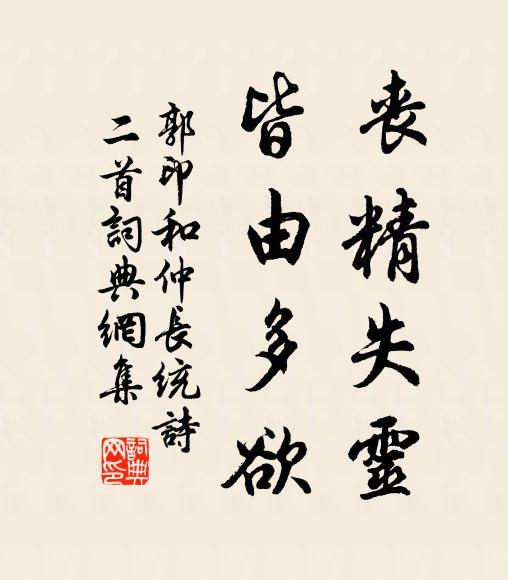 喪精失靈
皆由多欲
郭印和仲長統詩
二首詞典網集
詞典
网印